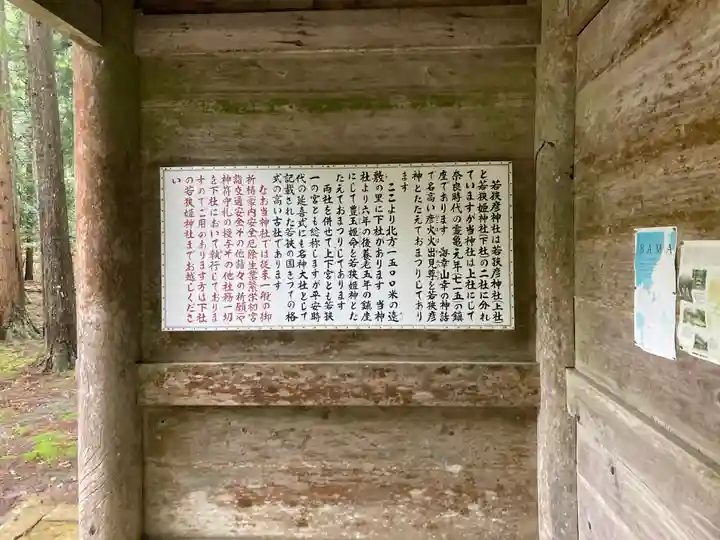 若狭彦神社は若狭彦神社(上社)
と若狭姫神社(下社)の二社に分れ
ていますが当神社は上社にして
奈良時代の霊亀元年(七一五)の鎮
座であります 海幸山幸の神話
で名高い彦火火出見尊を若狭彦
神とたたえておまつりしてあり
ます
ここより北方一五〇〇米の遠
敷の里に下社があります 当神
社より六年の後養老五年の鎮座
にして豊玉姫命を若狭姫神とた
たえておまつりしてあります
両社を併せて上下宮とも若狭
一の宮とも総称しますが平安時
代の延喜式にも名神大社として
記載された若狭の国きっての格
式の高い古社であります
なお当神社では従来一般の御
祈祷家内安全厄除生業繁栄初宮
詣交通安全その他諸々の祈願や
神符守札の授与その他社務一切
を下社において執行しておりま
すのでご用のあります方は下社
の若狭姫神社までお越しくださ
い
BAMA